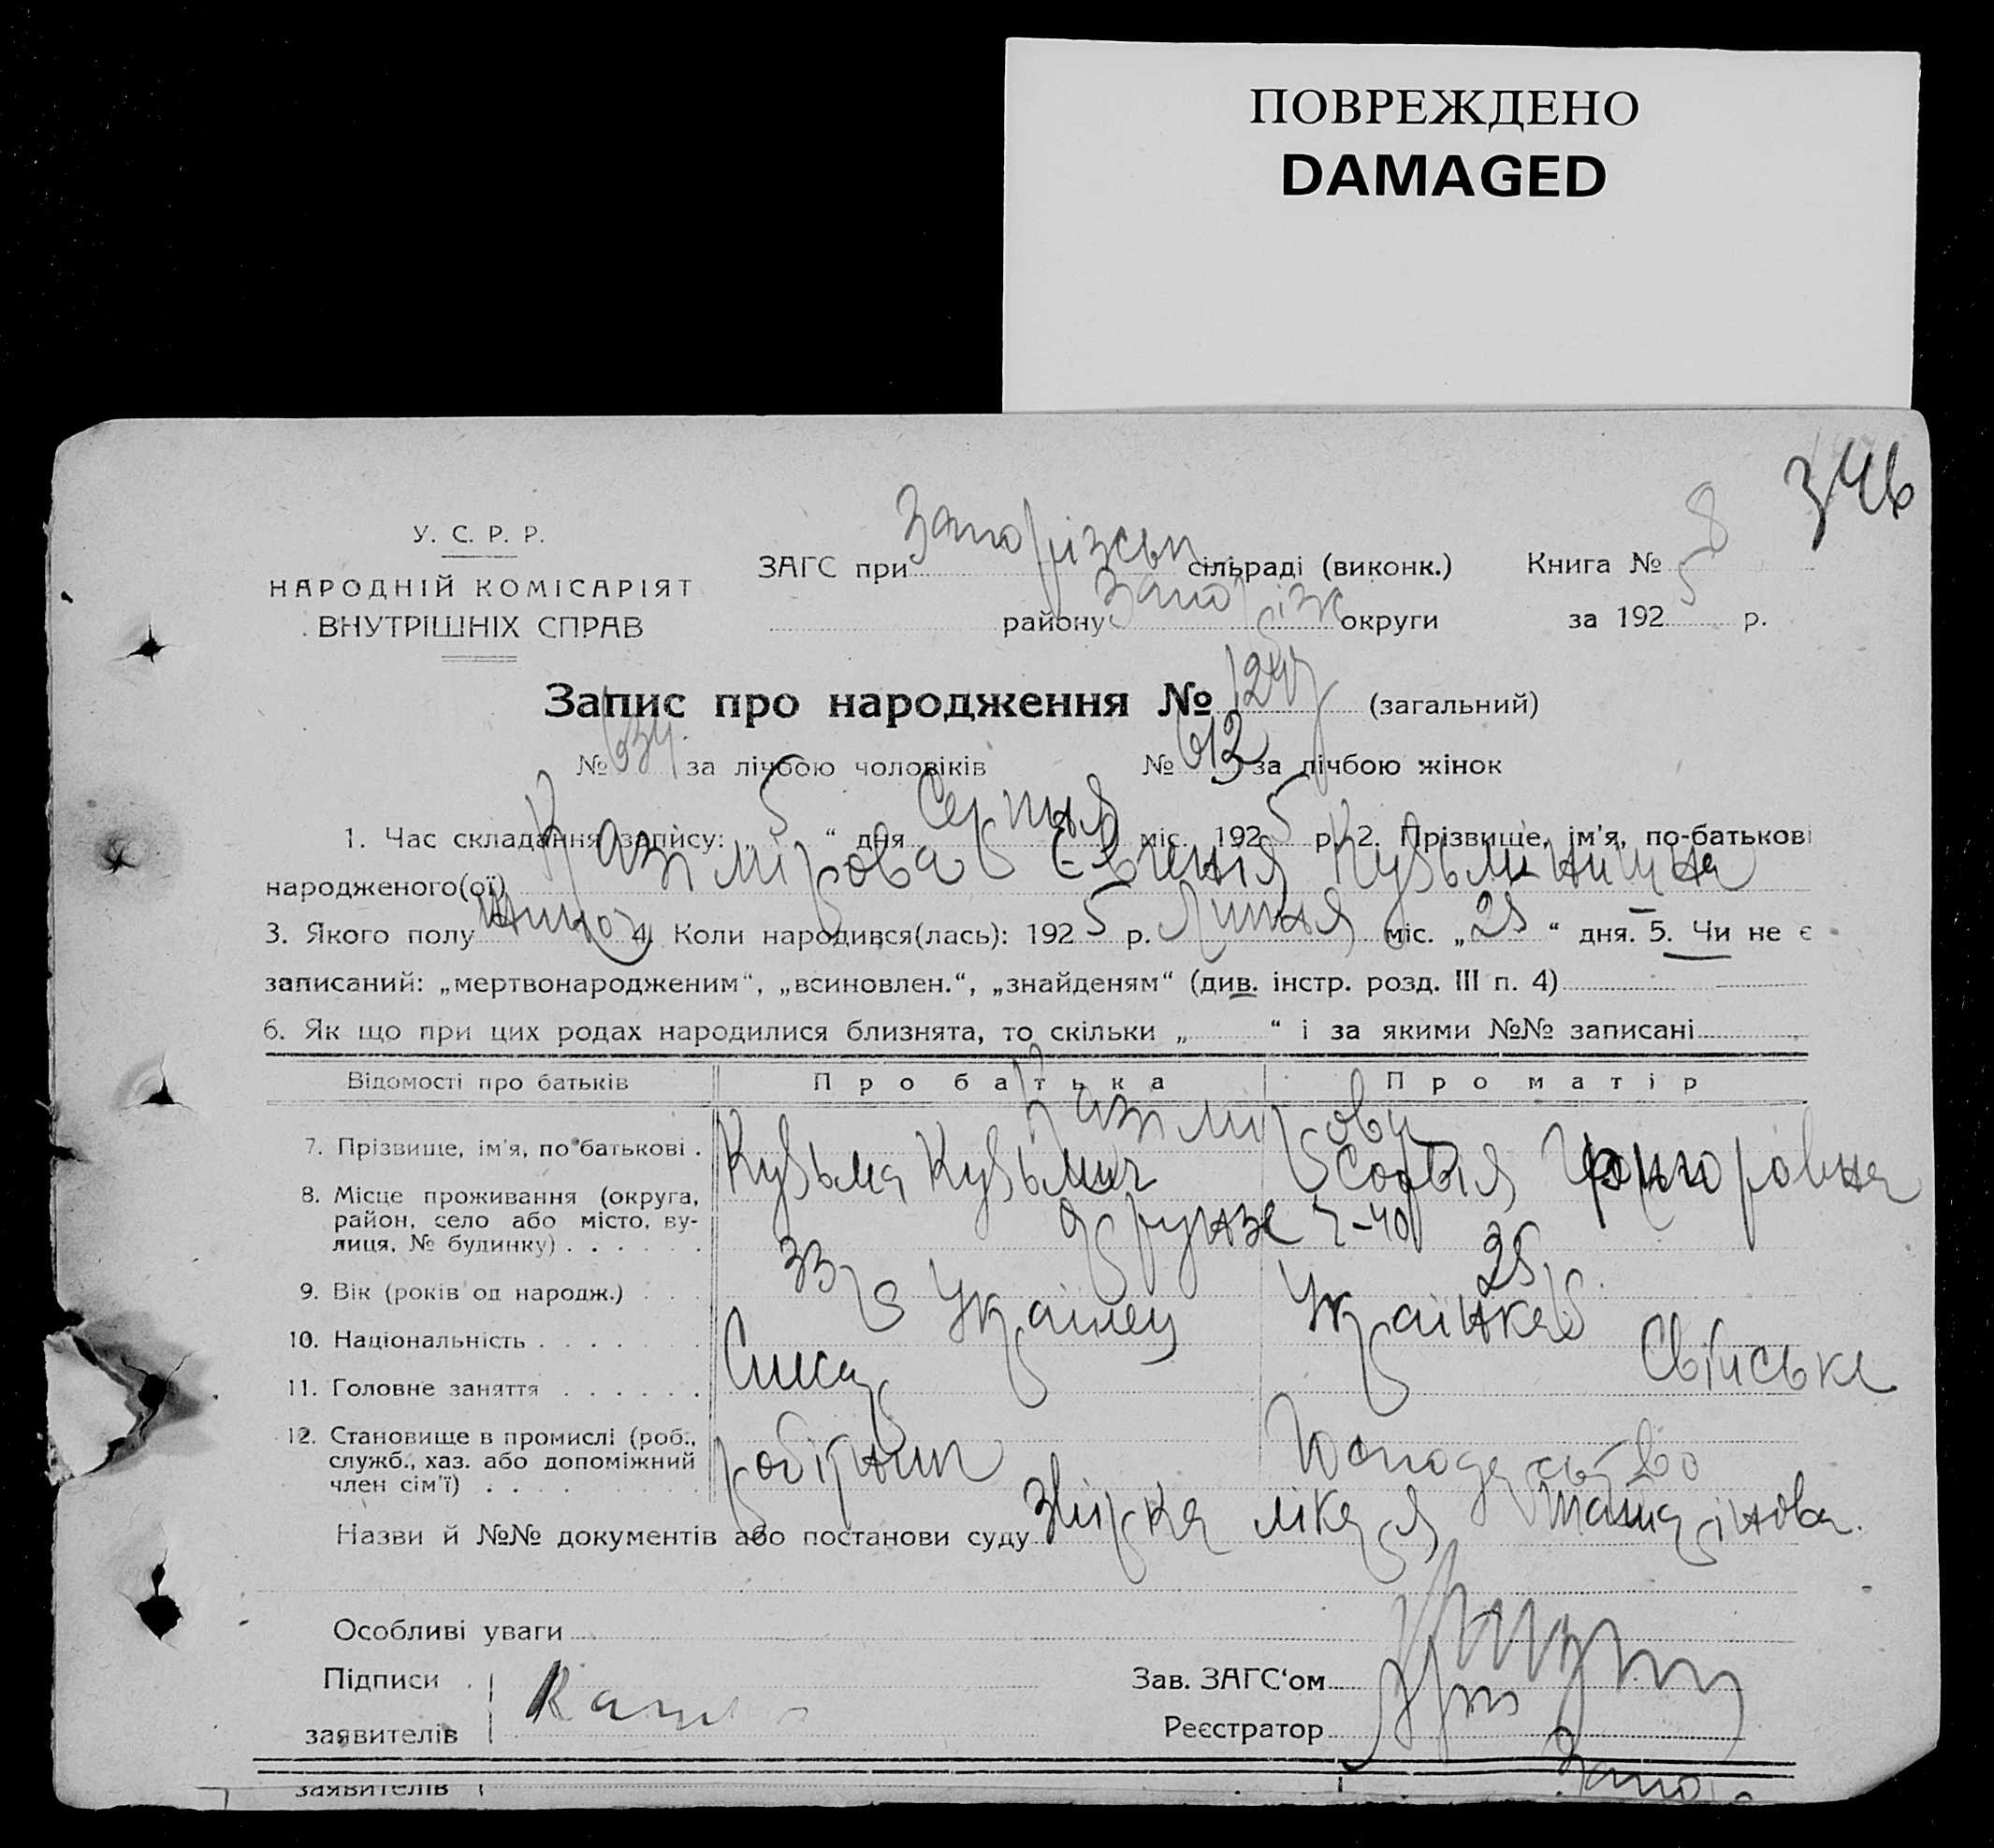 ПОВРЕЖДЕНО
DAMAGED
346
У. С. Р. Р.
НАРОДНІЙ КОМІСАРІЯТ
ВНУТРІШНІХ СПРАВ
ЗАГС при Запорізськ сільраді (виконк.) Книга № 8
району Запоріж округи за 1925 р.
Запис про народження № 1247 (загальний)
№ 634 за лічбою чоловіків № 613 за лічбою жінок
1. Час складання запису: „ 5 “ дня Серпня міс. 1925 р. 2. Прізвище, ім'я, по-батькові
народженого(ої) Казімірова Євгенія Кузьминишна
3. Якого полу жіноч 4. Коли народився(лась): 1925 р. Липня міс. „ 25 “ дня. 5. Чи не є
записаний: „мертвонародженим“, „всиновлен.“, „знайденям“ (див. інстр. розд. III п. 4)
6. Як що при цих родах народилися близнята, то скільки „ “ і за якими №№ записані
Відомості про батьків Про батька Про матір
Казімірови
7. Прізвище, ім'я, по батькові . Кузьма Кузьмич Софья Григорівна
8. Місце проживання (округа,
район, село або місто, ву-
лиця, № будинку) . . . . . .
9. Вік (років од народж.) . . . 33 25
10. Національність . . . . . . . Українец Українка
11. Головне заняття . . . . . . Слюсар Свійське
12. Становище в промислі (роб.,
служб., хаз. або допоміжний
член сім'ї) . . . . . . . . . робітник господарство
Назви й №№ документів або постанови суду лікаря
Особливі уваги
Підписи
заявителів
Зав. ЗАГС‘ом
Реєстратор
заявителів